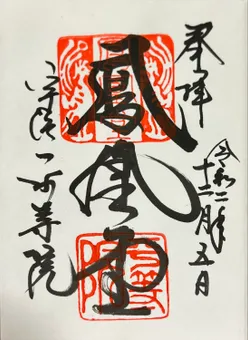 奉拝
令和二年
十二月五日
鳳凰堂
宇治 平等院